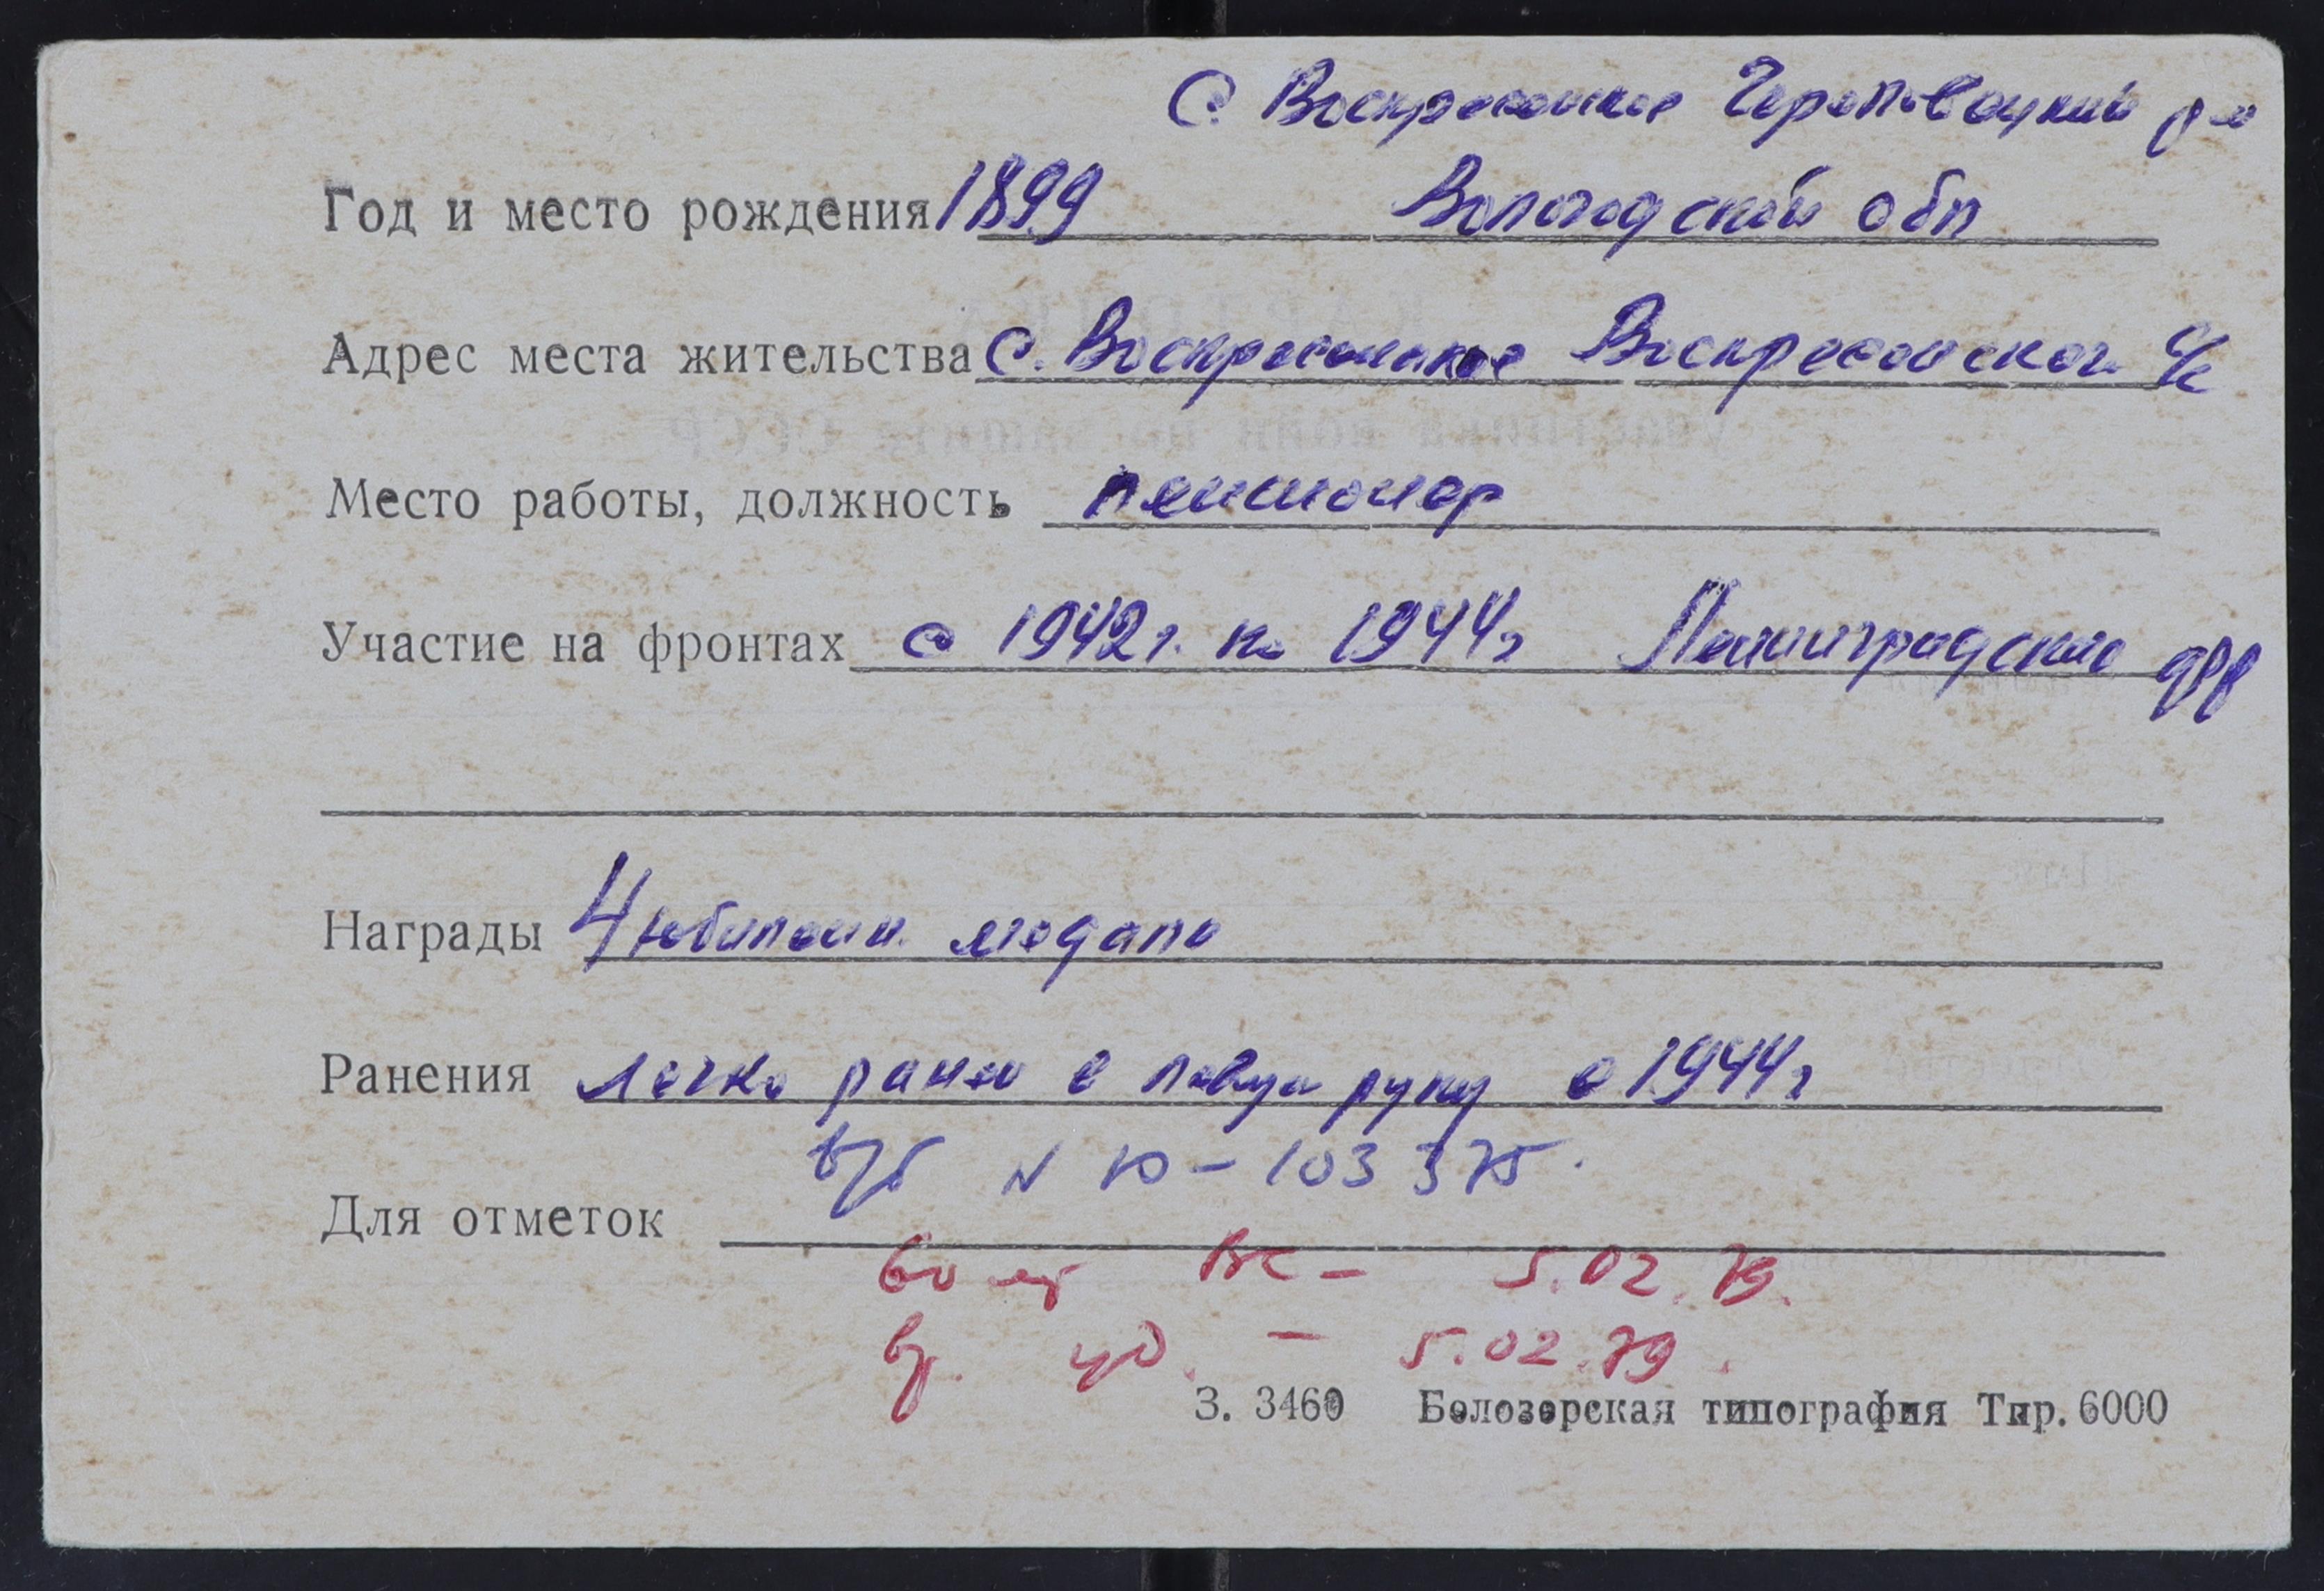 с. Воскресенское Череповецкий р-н
Год и место рождения 1899 Вологодской обл
Адрес места жительства с. Воскресенское Воскресенског с/с
Место работы, должность пенсионер
Участие на фронтах с 1942 г. по 1944 г Ленинградский фр
Награды 4 юбилейн. медали
Ранения легко ранен в левую руку в 1944 г
в/б № Ю-103375.
Для отметок
60 лет ВС - 5.02.79.
вр. уд. - 5.02.79.
З. 3460 Белозерская типография Тир. 6000